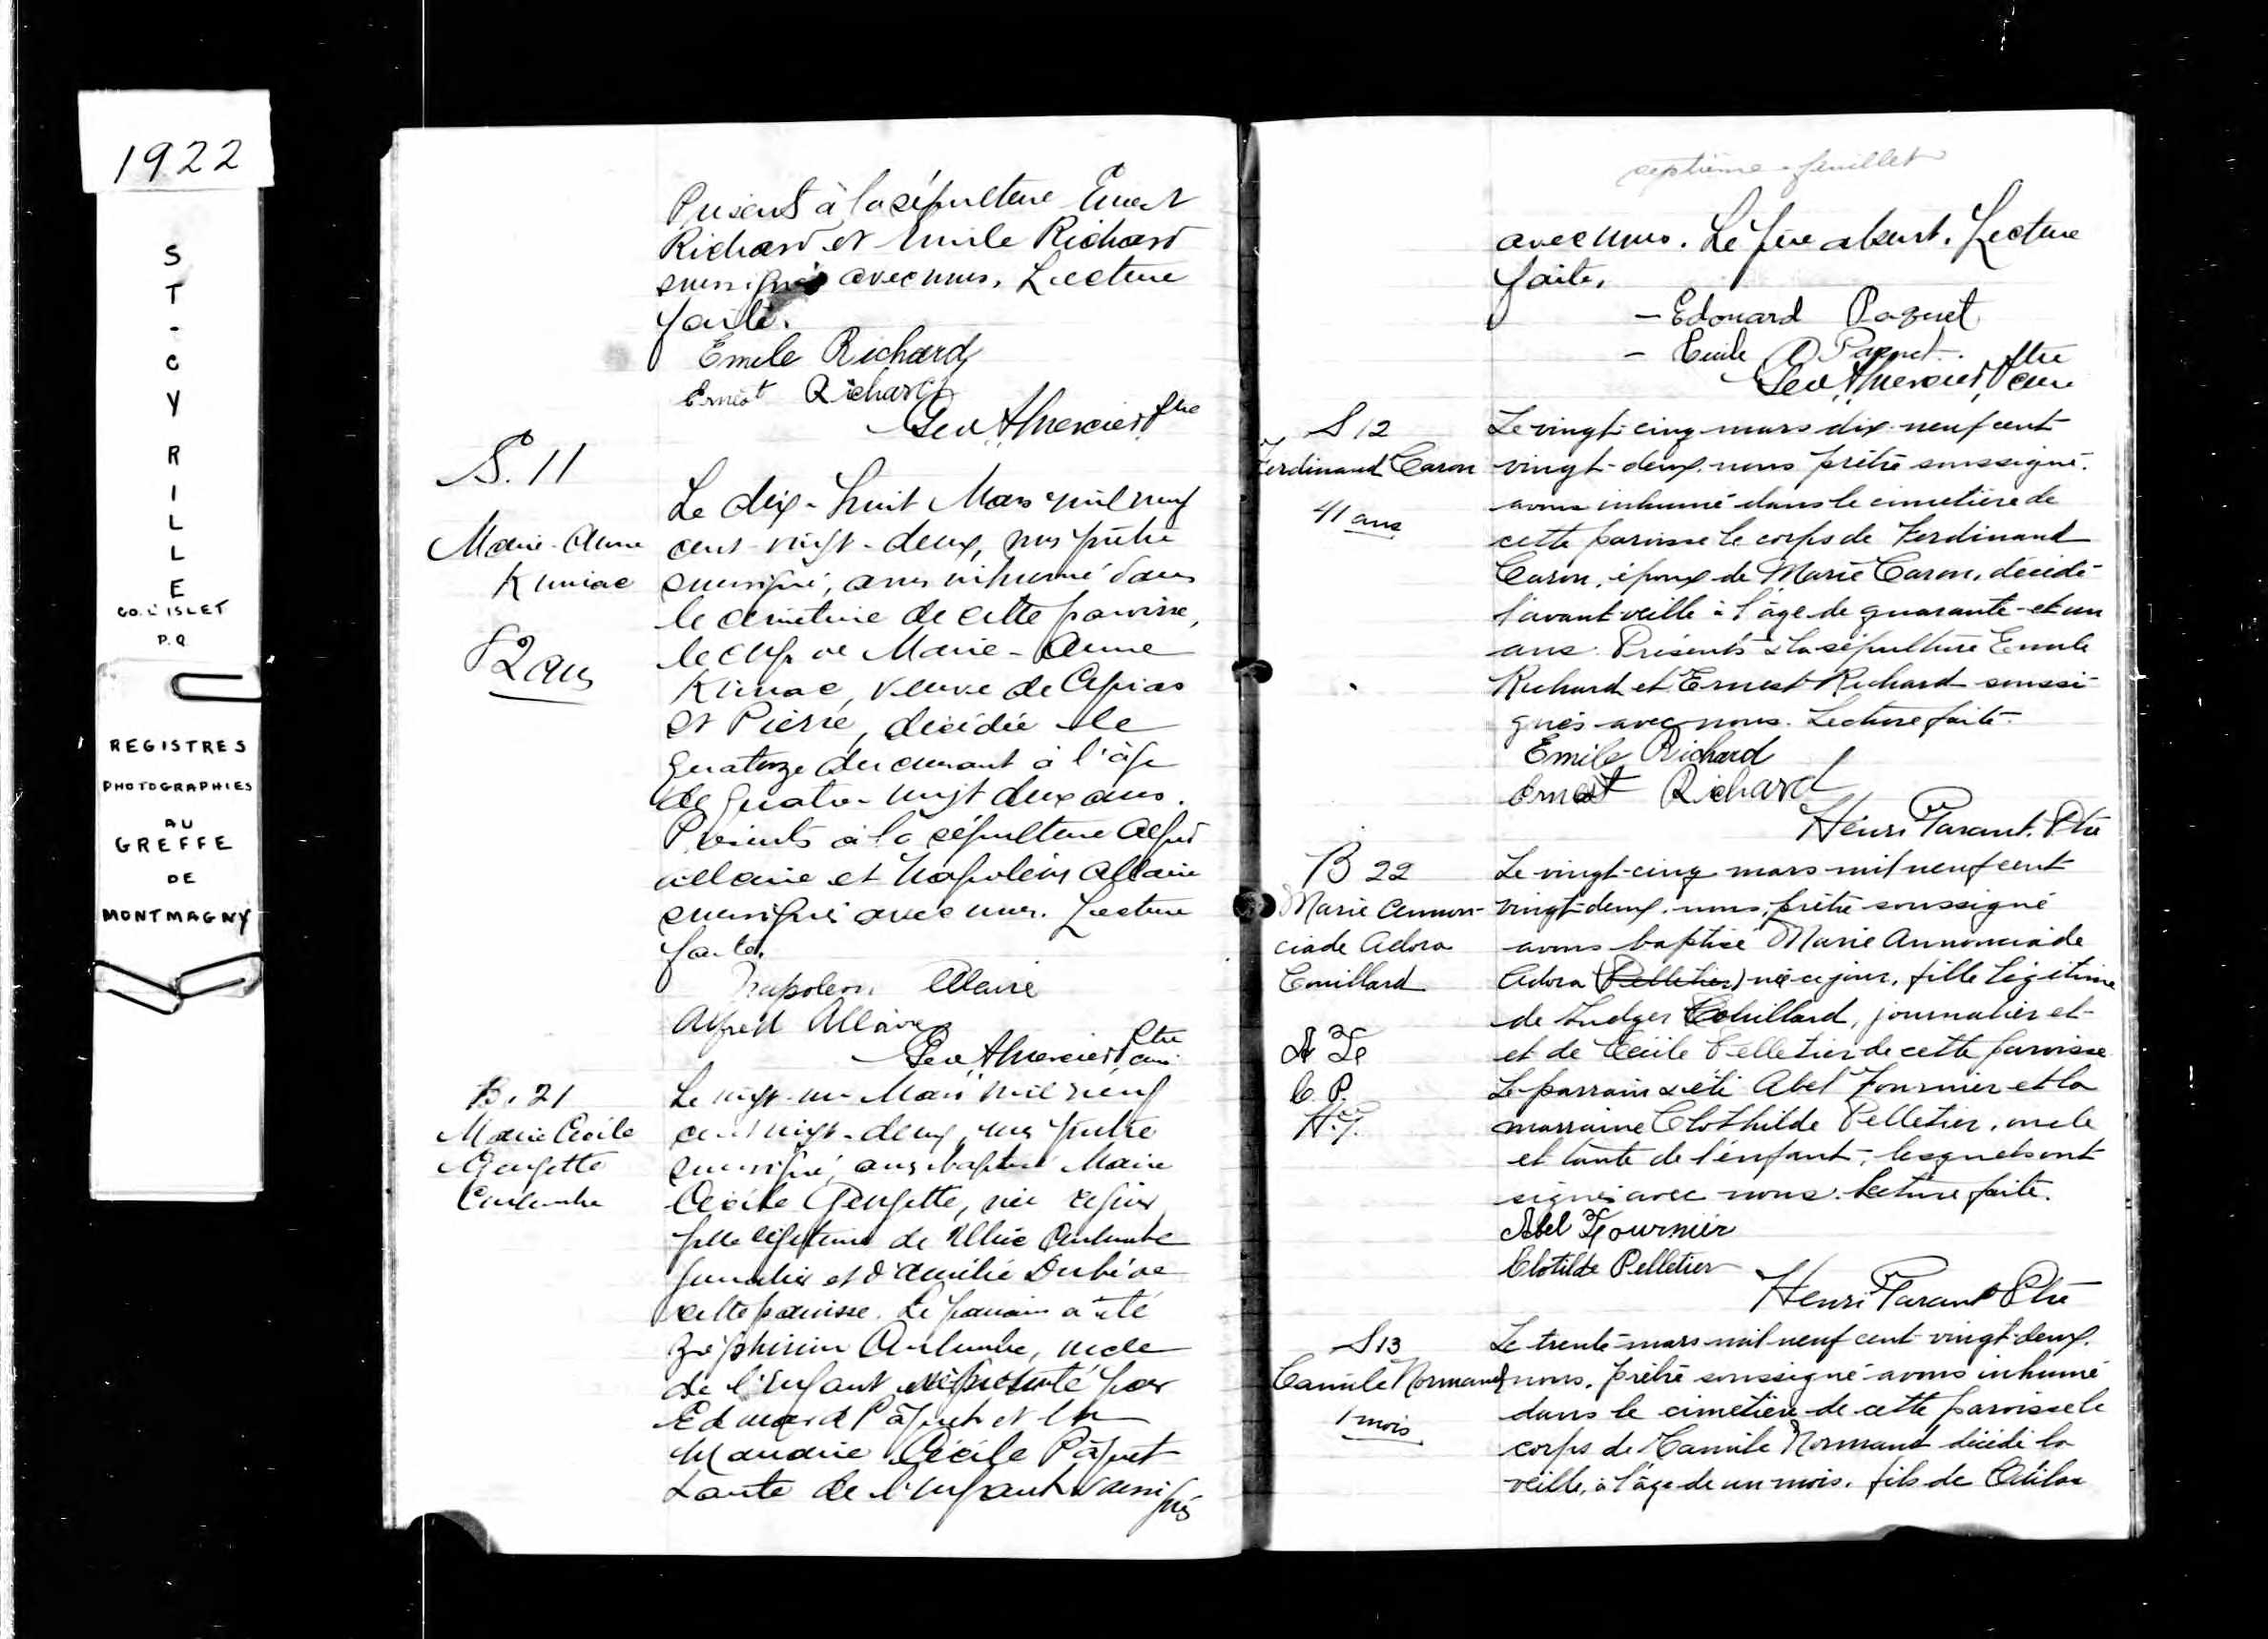 1922
ST-CYRILLE
CO. L'ISLET
P.Q.
REGISTRES
PHOTOGRAPHIES
AU
GREFFE
DE
MONTMAGNY
Présents à la sépulture Ernest
Richard et Emile Richard
soussignés avec nous. Lecture
faite.
Emile Richard
Ernest Richard
Geo. A. Mercier Ptre
S. 11
Marie-Anne
Kiriac
82 ans
Le dix-huit Mars mil neuf
cent-vingt-deux, nous prêtre
soussigné, avons inhumé dans
le cimetière de cette paroisse,
le corps de Marie-Anne
veuve de
St Pierre, décédée le
quatorze du courant à l'âge
de quatre-vingt deux ans.
Présents à la sépulture Alfred
Allaire et Napoléon Allaire
soussignés avec nous. Lecture
faite.
Napoleon Allaire
Alfred Allaire
Geo. A. Mercier Ptre
curé
B. 21
Marie Cécile
Georgette
Le vingt-un Mars mil neuf
cent vingt-deux, nous prêtre
soussigné, avons baptisé Marie
Cécile Georgette, née ce jour
fille légitime de
journalier et d'Amélie Dubé de
cette paroisse. Le parrain a été
Zéphirin oncle
de l'enfant représenté par
Edouard Pâquet et la
Marraine Cécile Pâquet
tante de l'enfant soussignés
septième feuillet
avec nous. Le père absent. Lecture
faite.
- Edouard Paquet
- Cécile Paquet
Geo. A. Mercier, Ptre
curé
S 12
Ferdinand Caron
41 ans
Le vingt-cinq mars dix-neuf cent
vingt-deux. nous prêtre soussigné.
avons inhumé dans le cimetière de
cette paroisse le corps de Ferdinand
Caron, époux de Marie Caron, décédé
l'avant veille à l'âge de quarante-et-un
ans. Présents à la sépulture Emile
Richard et Ernest Richard soussi-
gnés avec nous. Lecture faite.
Emile Richard
Ernest Richard
Henri Parant. Ptre
B 22
Marie Annon-
ciade Adora
Couillard
A F
C. P.
H. P.
Le vingt-cinq mars mil neuf cent
vingt-deux. nous, prêtre soussigné
avons baptisé Marie Annonciade
Adora (Pelletier) née ce jour, fille légitime
de Ludger Couillard, journalier et
et de Cécile Pelletier de cette paroisse
Le parrain a été Abel Fournier et la
marraine Clothilde Pelletier, oncle
et tante de l'enfant, lesquels ont
signés avec nous. Lecture faite.
Abel Fournier
Clotilde Pelletier
Henri Parant Ptre
S 13
Camile Normand
1 mois
Le trente mars mil neuf cent vingt-deux.
nous. prêtre soussigné avons inhumé
dans le cimetière de cette paroisse le
corps de Camile Normand décédé la
veille, à l'âge de un mois. fils de